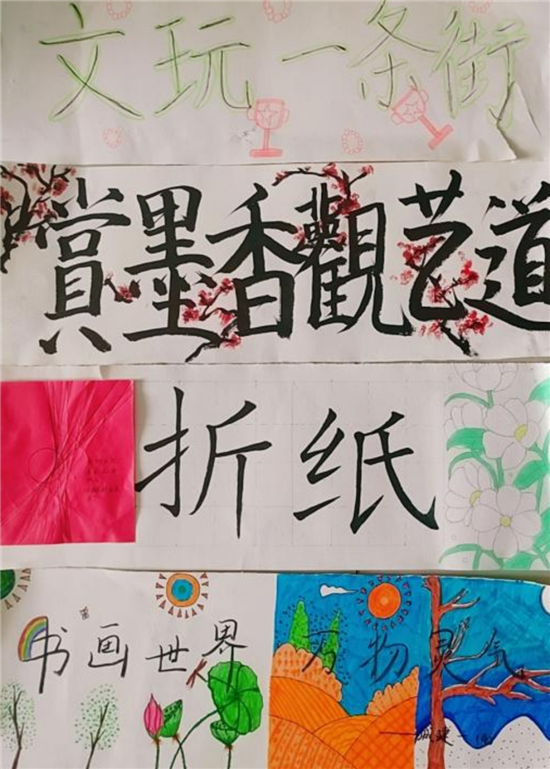 文玩一条街
賞墨香觀艺道
折纸
书画世界 万物灵气